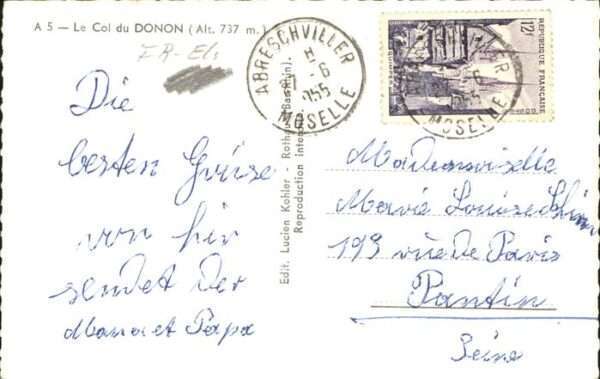 A 5 — Le Col du DONON (Alt. 737 m.)
FR-El.
Die
besten Grüsse
von hir
sendet Der
Mama et Papa
Edit. Lucien Kohler - Rothau (Bas-Rhin).
Reproduction inter
ABRESCHVILLER
1 -6
1955
MOSELLE
12F
REPUBLIQUE FRANÇAISE
MOSELLE
Mademoiselle
Marie Louise
193 rue de Paris
Pantin
Seine